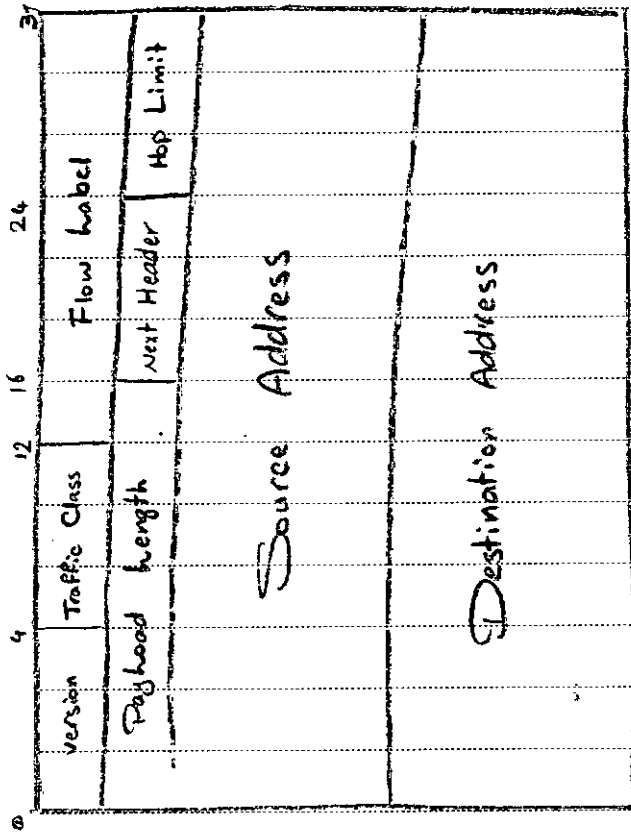 0 4 12 16 24 31
Version Traffic Class Flow Label
Payload Length Next Header Hop Limit
Source Address
Destination Address